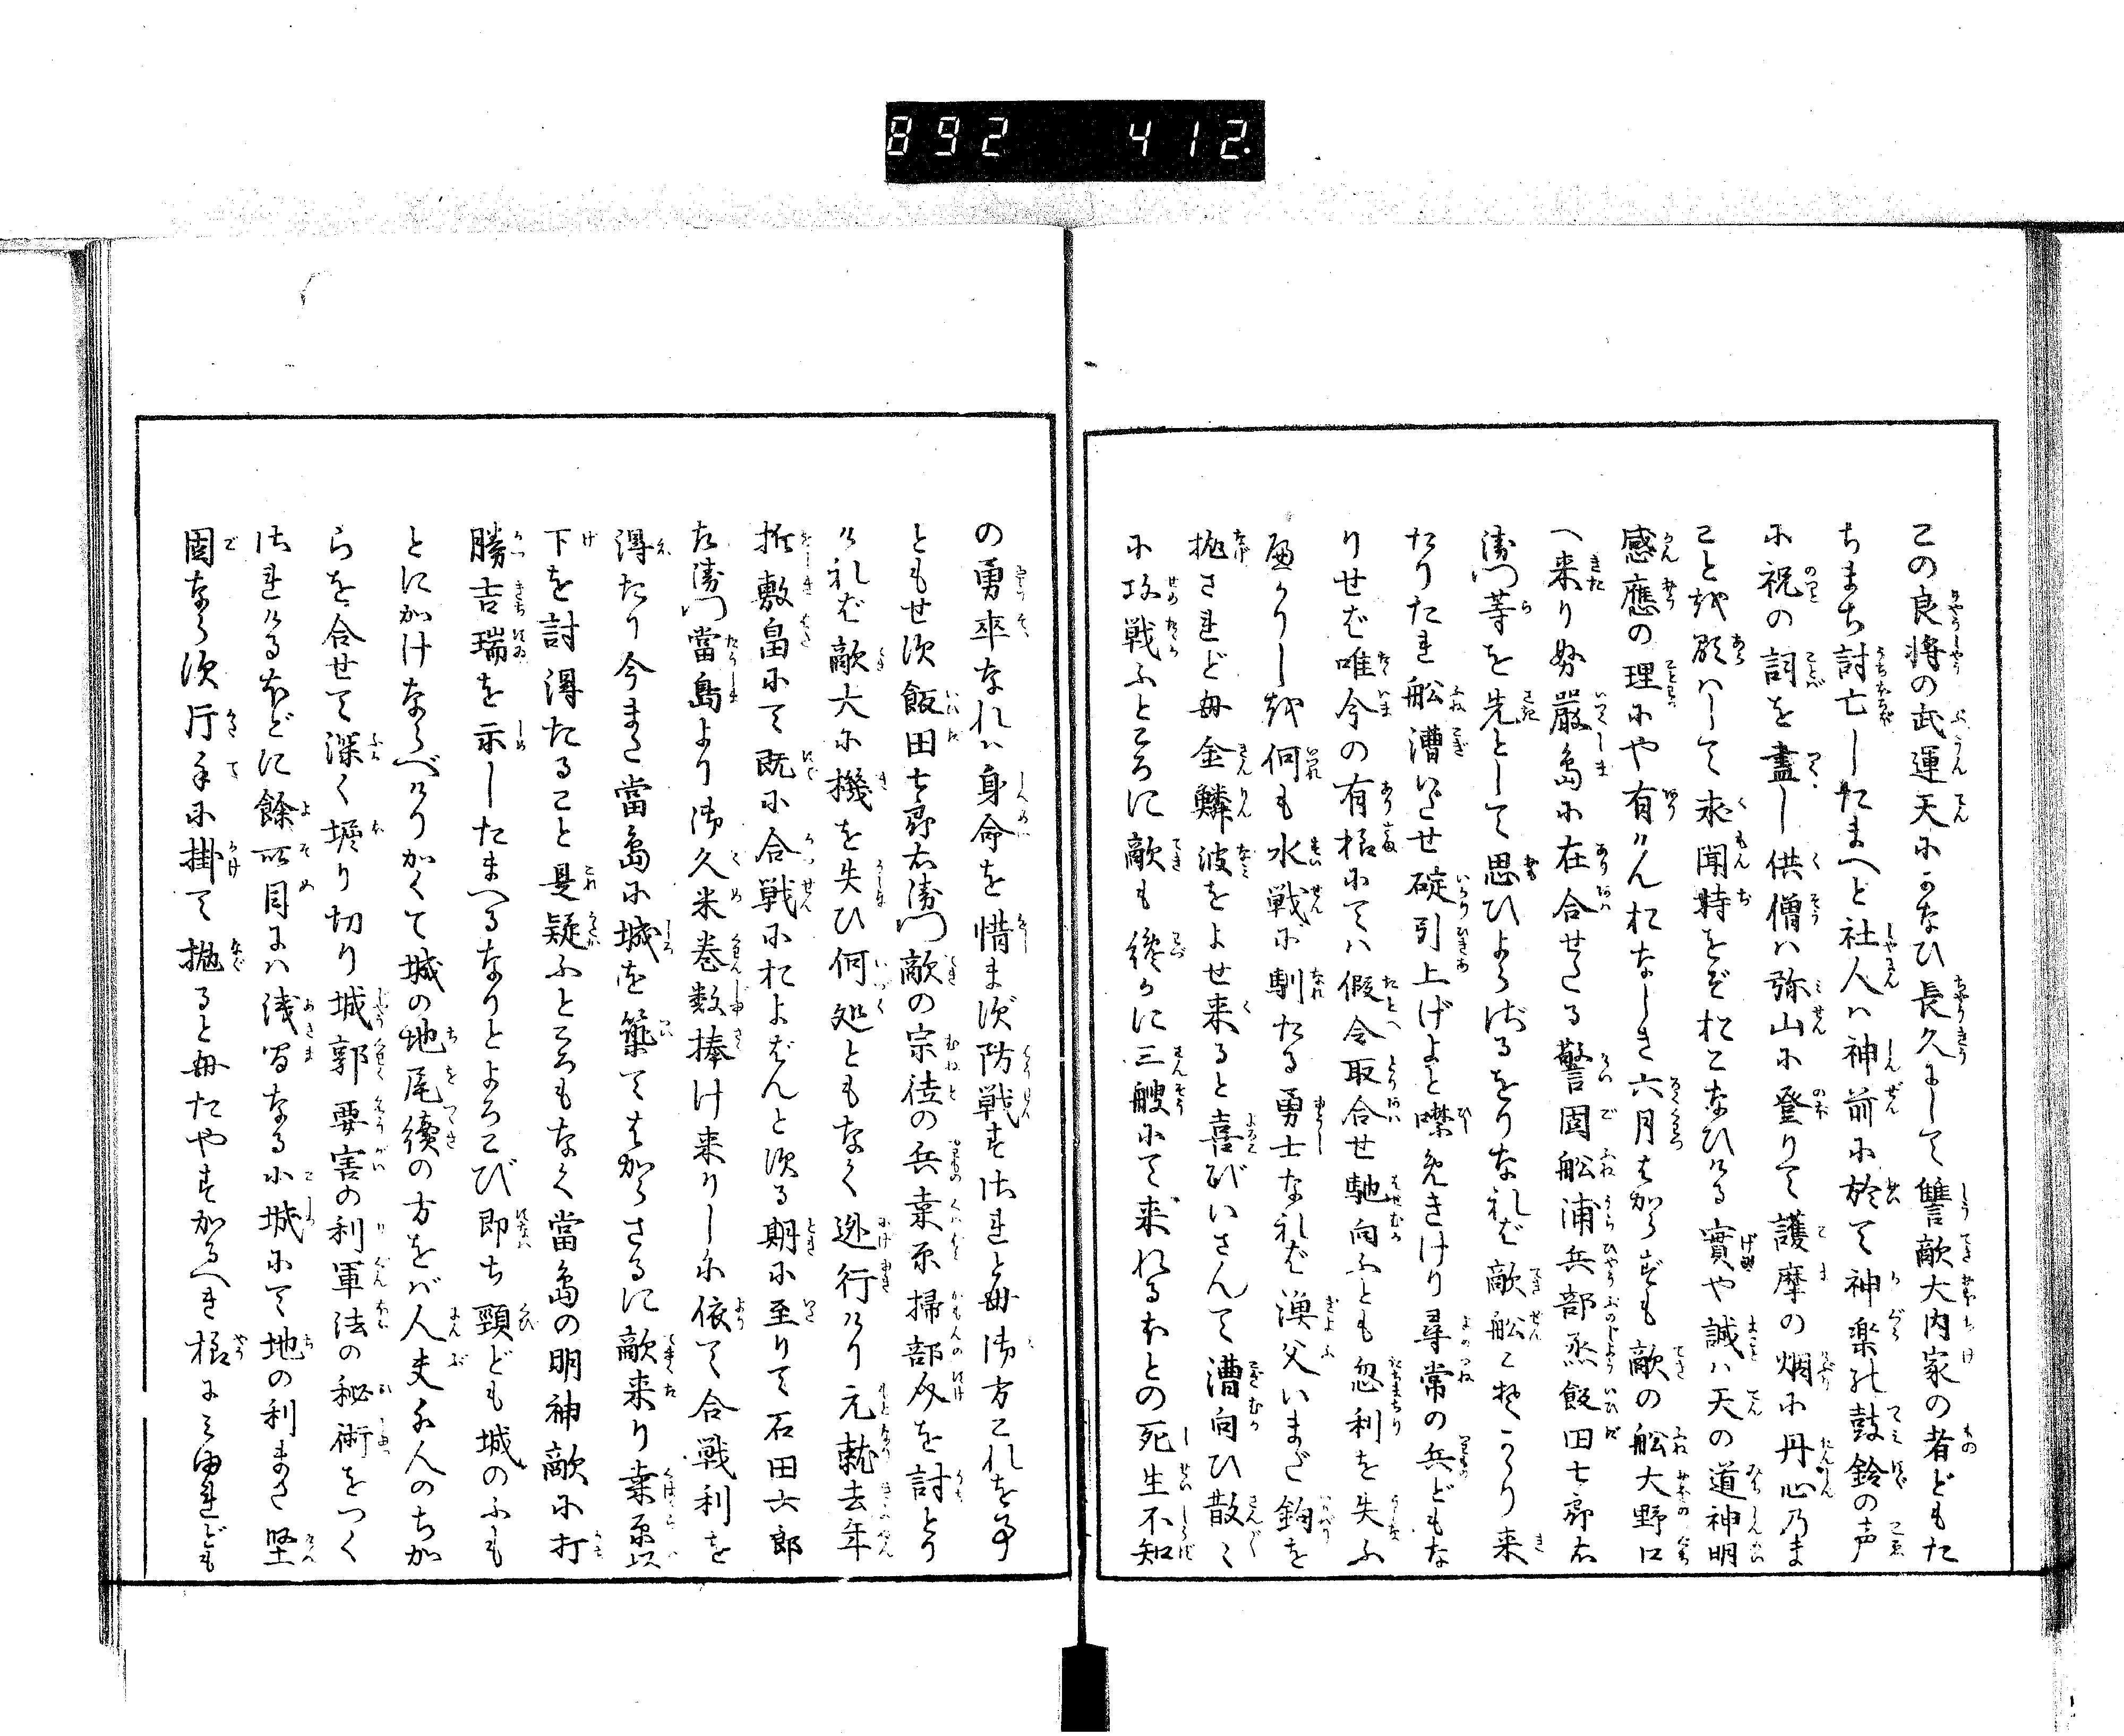 892 412.
この良将の武運天にかなひ長久にして讐敵大内家の者どもた
ちまち討亡したまへと社人ハ神前に於て神楽の鼓鈴の声
に祝の詞を盡し供僧ハ弥山に登りて護摩の烟に丹心のま
ことを顕ハして求聞持をぞおこなひける實や誠ハ天の道神明
感應の理にや有けんおなしき六月はからずも敵の舩大野口
へ来り厳島に在合せたる警固舩浦兵部丞飯田七郎右
衛門等を先として思ひよらざるをりなれば敵舩こぎかかり来
たりたれ舩漕いだせ碇引上げよと噪めきけり尋常の兵どもな
りせば唯今の有様にてハ假令取合せ馳向ふとも忽利を失ふ
べかりしを何も水戦に馴たる勇士なれば漁父いまだ鈎を
抛ざれども金鱗波をよせ来ると喜びいさんで漕向ひ散々
に攻戦ふところに敵も纔かに三艘にて来れるほとの死生不知
の勇卒なれハ身命を惜まず防戦すされとも御方これを事
ともせす飯田七郎右衛門敵の宗徒の兵桑原掃部介を討とり
けれバ敵大に機を失ひ何処ともなく逃行けり元就去年
折敷畠にて既に合戦におよばんとする期に至りて石田六郎
左衛門當島より御久米巻数捧け来りしに依て合戦利を
得たり今また當島に城を築てはからさるに敵来り桑原以
下を討得たること是疑ふところもなく當島の明神敵に打
勝吉瑞を示したまへるなりとよろこび即ち頸ども城のふも
とにかけならべけりかくて城の地尾續の方をバ人夫千人のちか
らを合せて深く堀り切り城郭要害の利軍法の秘術をつく
されけるほどに餘所目にハ浅間なる小城にて地の利まさ堅
固ならす行手に掛て抛るともたやすかるへき様にみゆれども